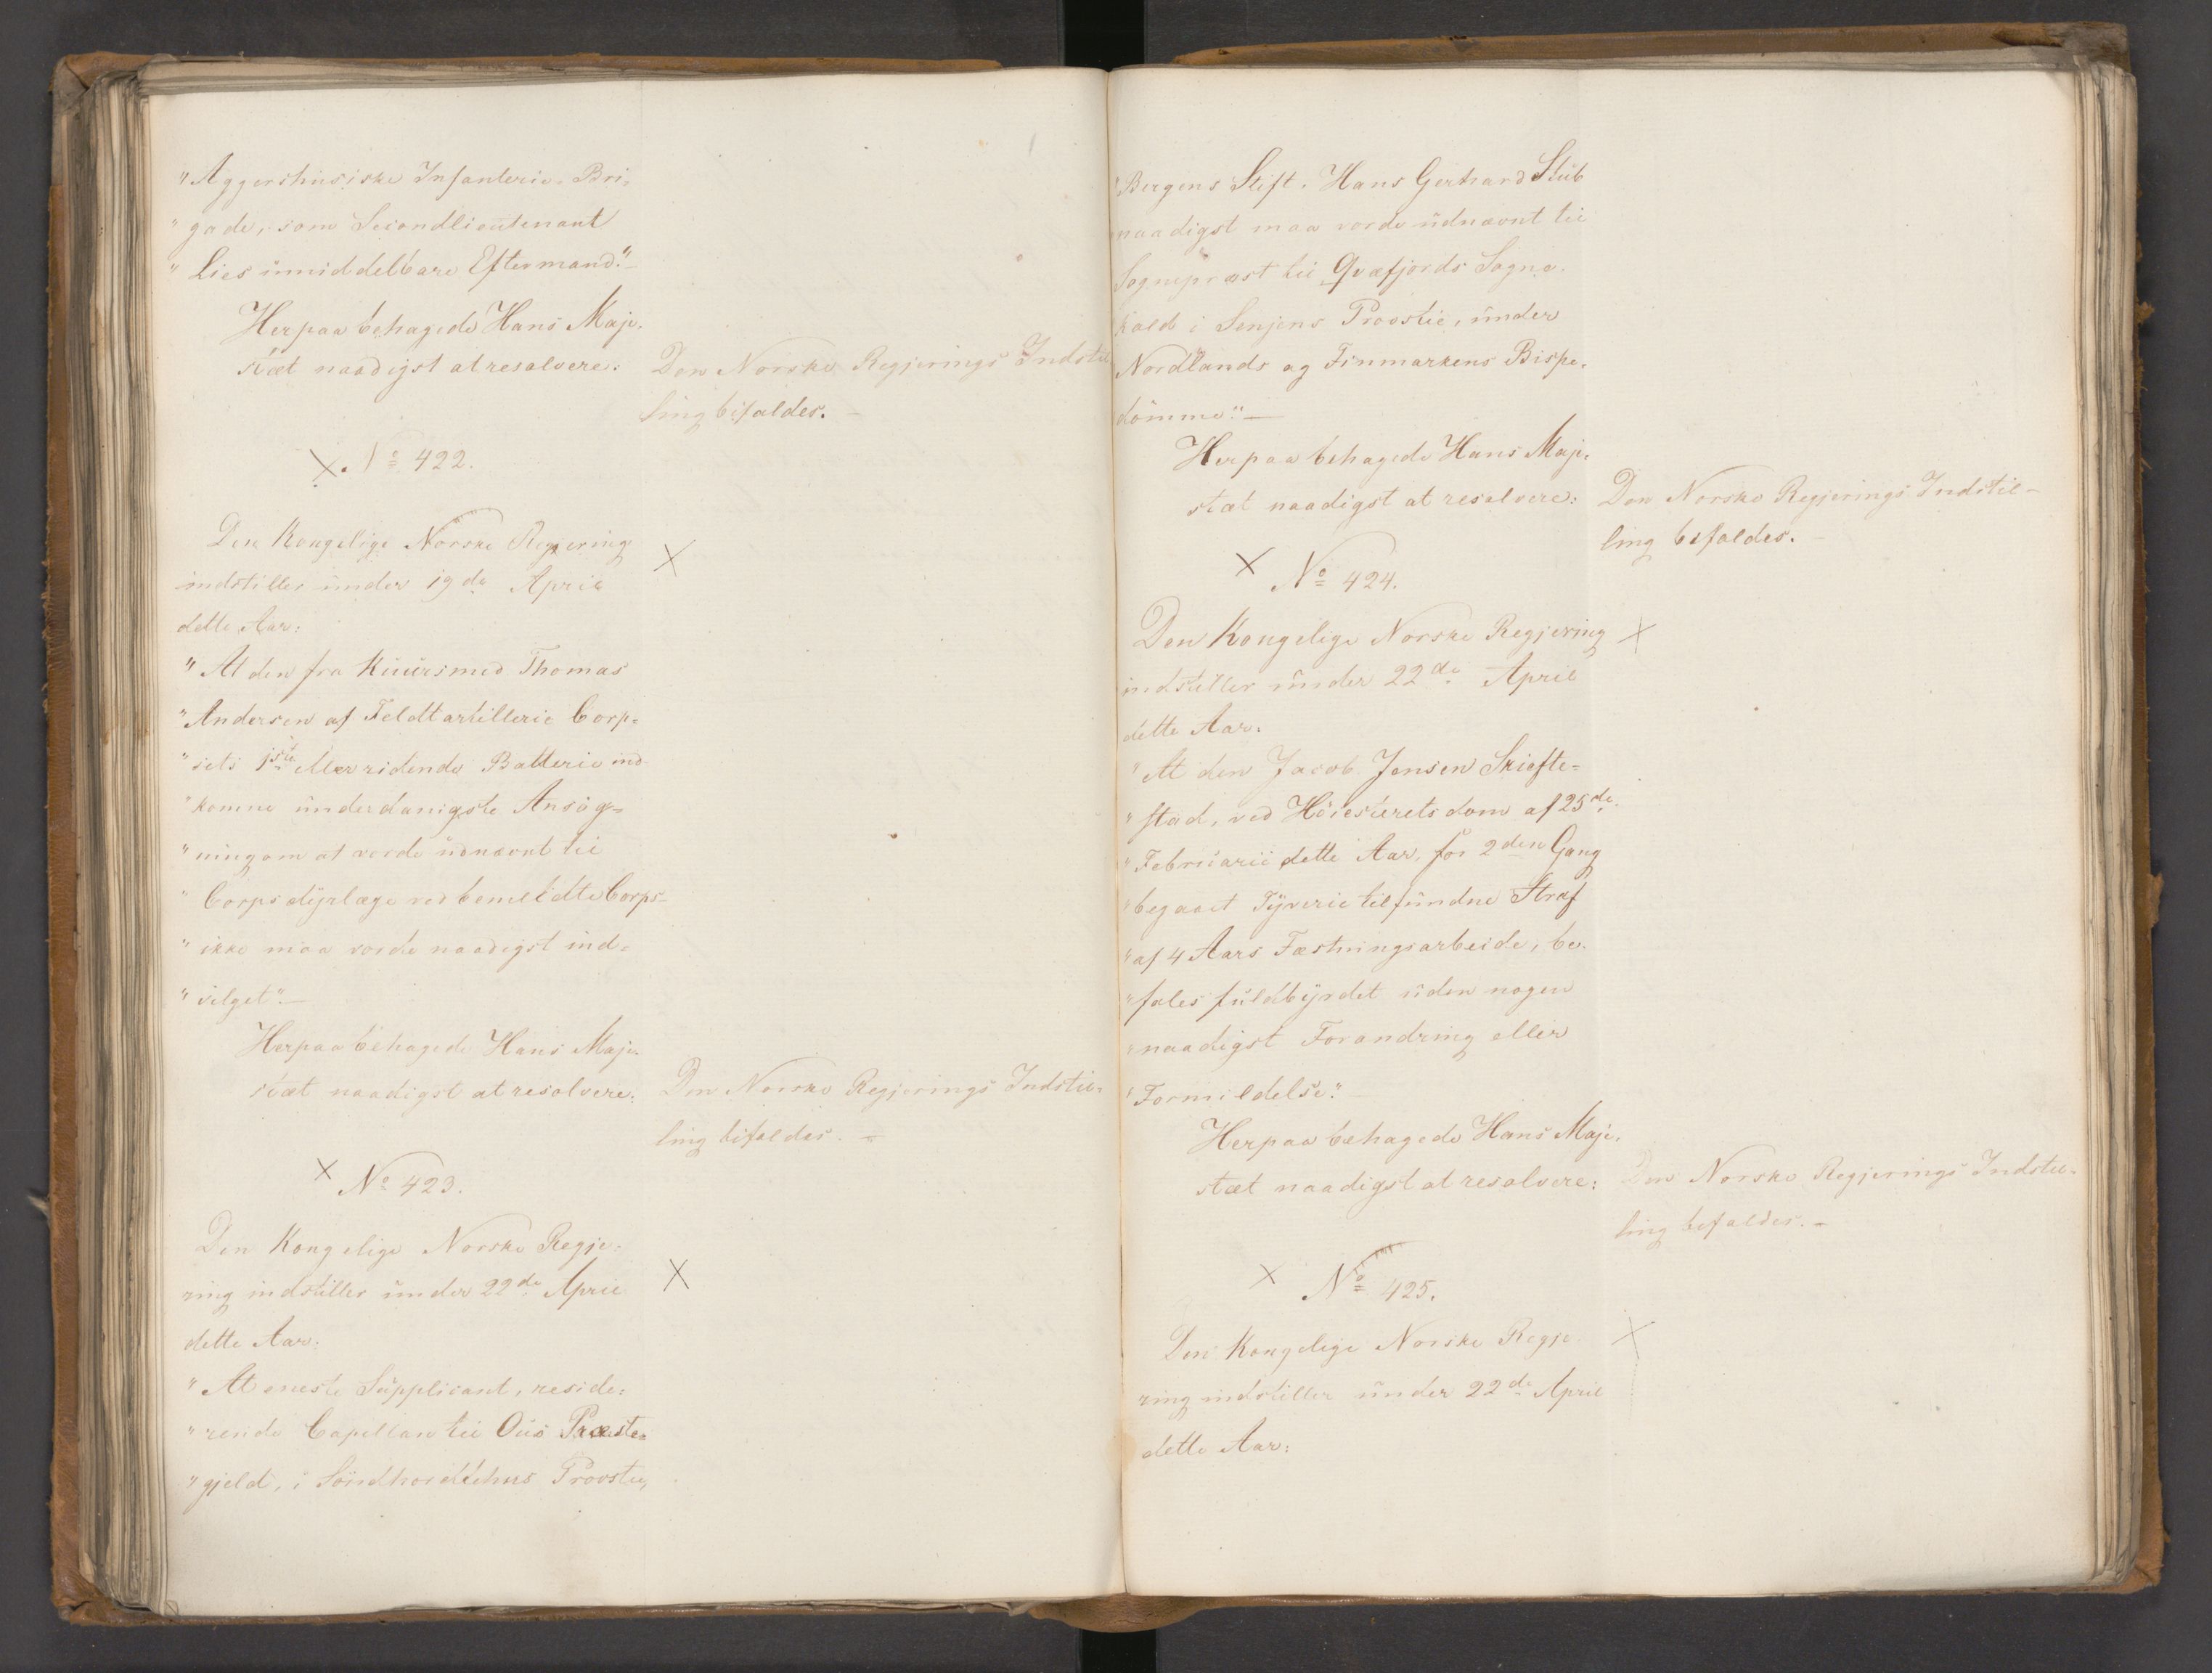 "Aggershusiske Infanterie-Bri-
"gade, som Secondlieutenant
"Lies umiddelbare Eftermand."
Herpaa behagede Hans Maje-
stæt naadigst at resolvere:
Den Norske Regjerings Indstil-
ling bifaldes.
No 422.
Den Kongelige Norske Regjering
indstiller under 19de April
dette Aar:
"At den fra Kuursmed Thomas
"Andersen af Feldtartillerie Corp-
"sets 1ste ridende Batterie ind-
"komne underdanigste Ansøg-
"ning om at vorde udnævnt til
"Corpsdyrlæge ved bemeldte Corps
"ikke maa vorde naadigst ind-
"vilget".
Herpaa behagede Hans Maje-
stæt naadigst at resolvere:
Den Norske Regjerings Indstil-
ling bifaldes.
No 423.
Den Kongelige Norske Regje-
ring indstiller under 22de April
dette Aar:
"At eneste Supplicant, reside-
"rende Capellan til Ous Præste-
"gjeld, i Søndhordlehns Provstie,
"Bergens Stift, Hans Gerhard Stub
naadigst maa vorde udnævnt til
Sognepræst til Qvæfjords Sogne-
kald i Senjens Provstie, under
Nordlands og Finmarkens Bispe-
dømme."
Herpaa behagede Hans Maje-
stæt naadigst at resolvere:
Den Norske Regjerings Indstil-
ling bifaldes.
No 424.
Den Kongelige Norske Regjering
indstiller under 22de April
dette Aar:
"At den Jacob Jensen Skiefte-
"stad, ved Høiesterets dom af 25de
"Februarii dette Aar, for 2den Gang
"begaaet Tyverie tilfundne Straf
"af 4 Aars Fæstningsarbeide, be-
"fales fuldbyrdet uden nogen
"naadigst Forandring eller
"Formildelse."
Herpaa behagede Hans Maje-
stæt naadigst at resolvere:
Den Norske Regjerings Indstil-
ling bifaldes.
No 425.
Den Kongelige Norske Regje-
ring indstiller under 22de April
dette Aar: